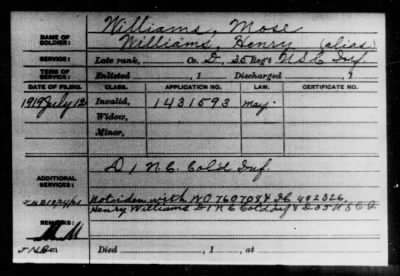 NAME OF SOLDIER: Williams, Mose
Williams, Henry (alias)
SERVICE: Late rank, Co. D, 35 Reg't U S C Inf.
TERM OF SERVICE: Enlisted , 1 Discharged , 1
DATE OF FILING. CLASS. APPLICATION NO. LAW. CERTIFICATE NO.
1919 July 12 Invalid, 1431593 May.
Widow,
Minor,
ADDITIONAL SERVICES: D 1 N.C. Cold Inf.
Not iden with WO
Henry Williams D 1 N C Cold Inf & D 35 U S C I
REMARKS:
Died , 1 , at